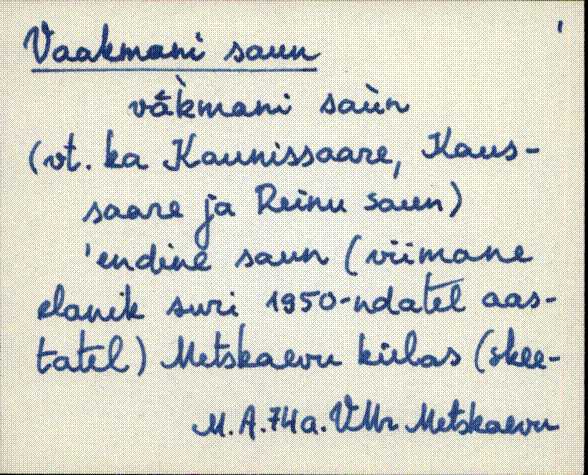 Vaakmani saun
vâkmani saùn
(vt. ka Kaunissaare, Kaus-
saare ja Reinu saun)
'endine saun (viimane
elanik suri 1950-ndatel aas-
tatel) Metskaevu külas (skee-
M.A. 74 a. VMr Metskaevu